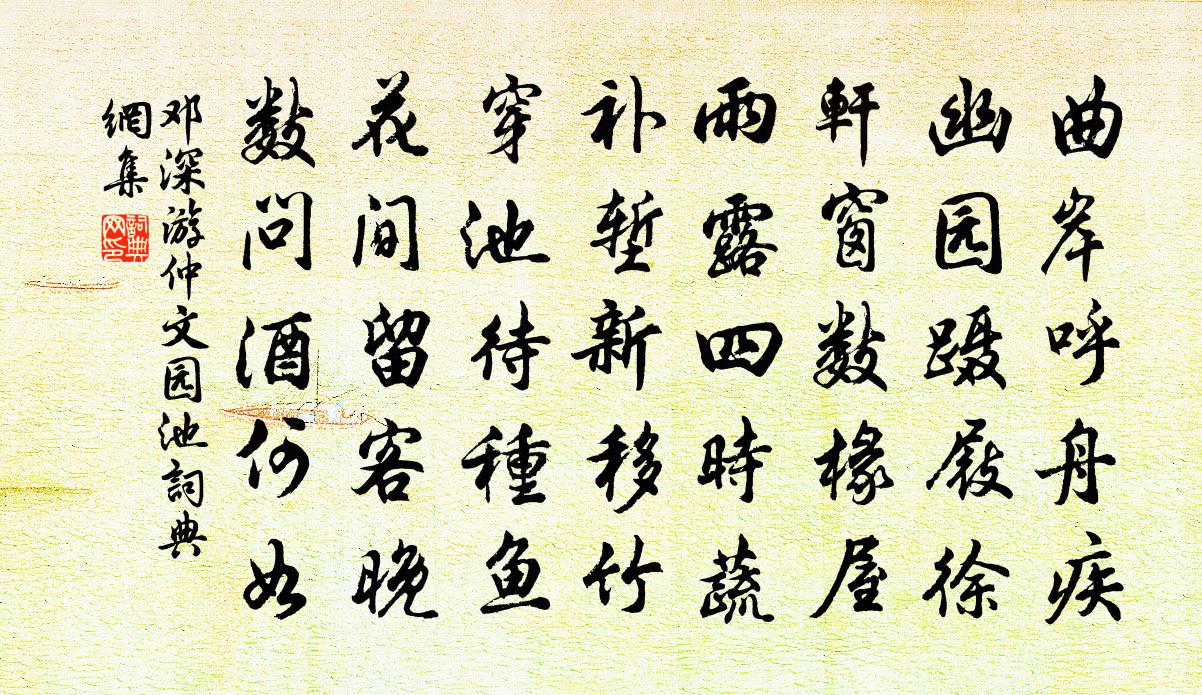 曲岸呼舟疾
幽园蹑屐徐
軒窗数椽屋
雨露四時蔬
补堑新移竹
穿池待種鱼
花间留客晚
数问酒何如
邓深游仲文园池詞典
網集
詞典
网印